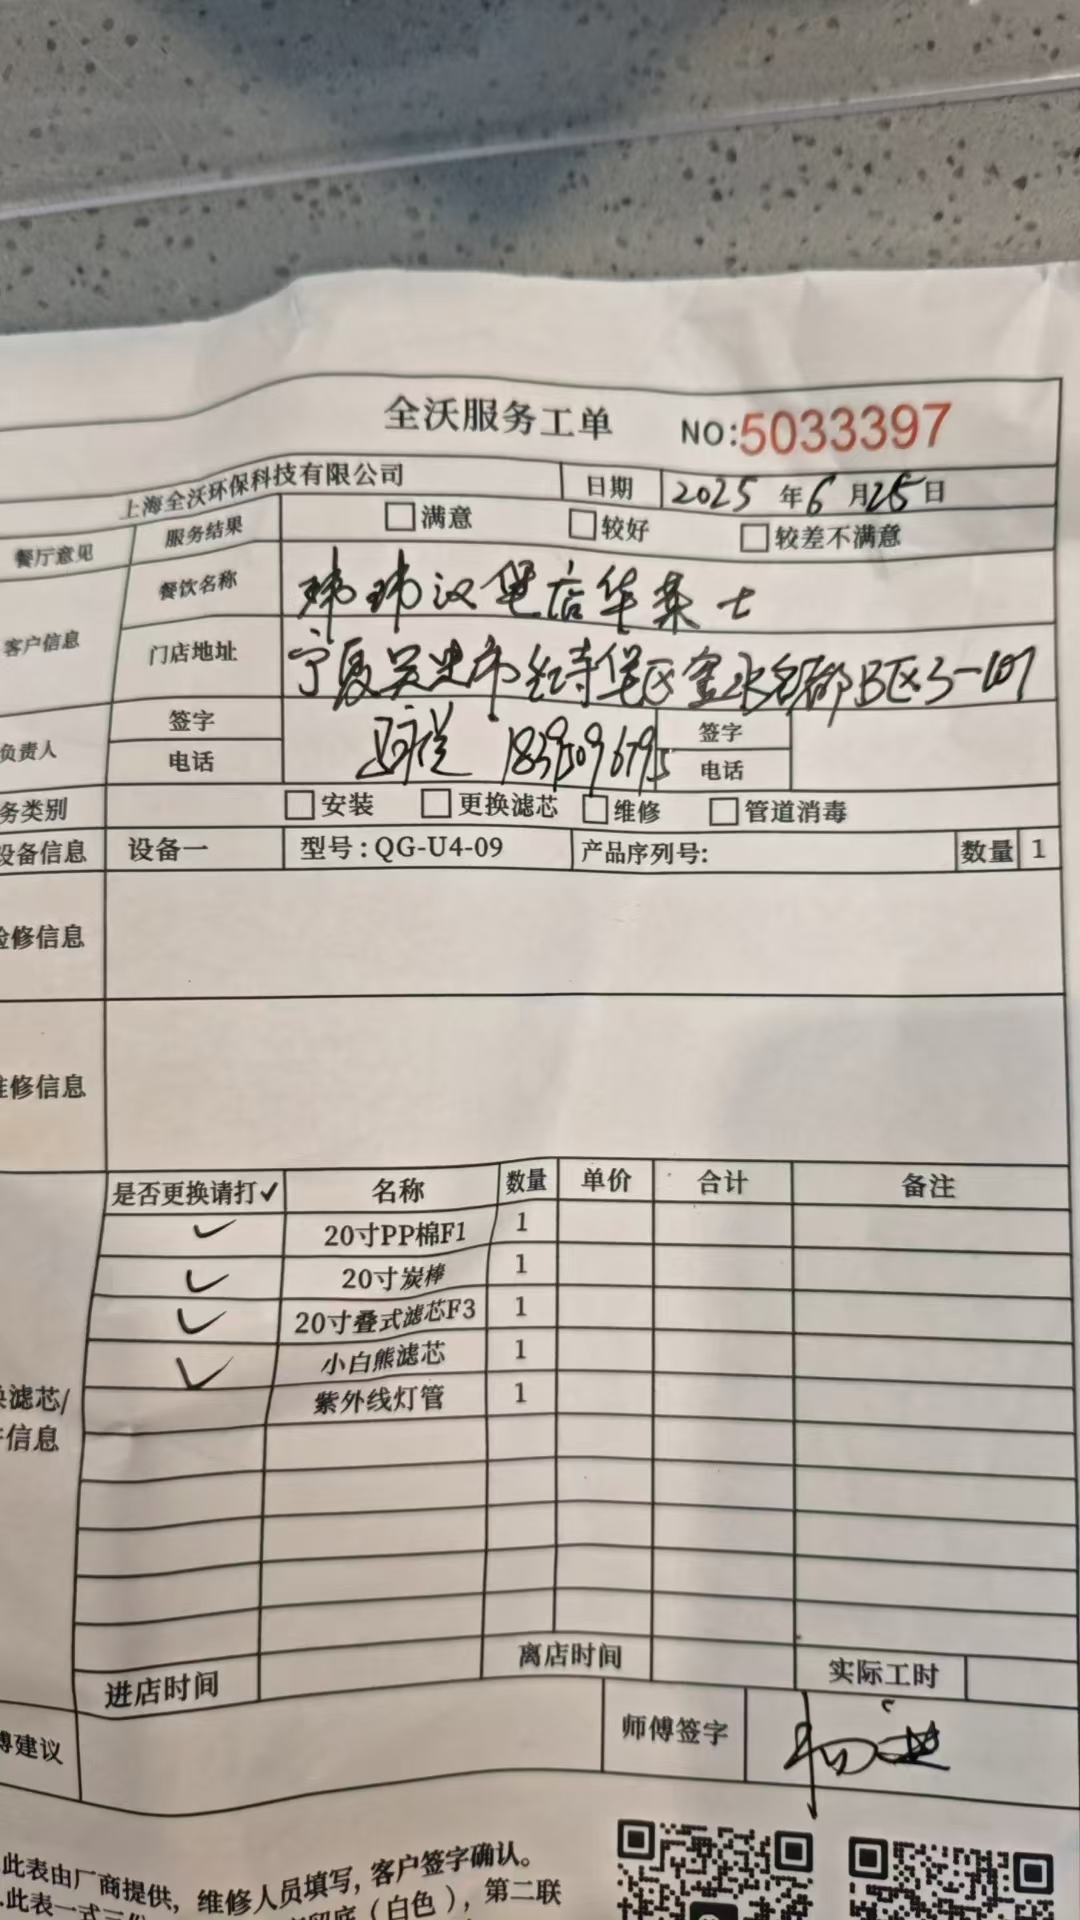 全沃服务工单 NO:5033397
上海全沃环保科技有限公司 日期 2025年6月25日
餐厅意见 服务结果 □满意 □较好 □较差不满意
客户信息 餐饮名称 玮玮汉堡店华莱士
门店地址 宁夏吴忠市红寺堡区金水名都B区3-107
负责人 签字 签字
电话 电话
务类别 □安装 □更换滤芯 □维修 □管道消毒
设备信息 设备一 型号:QG-U4-09 产品序列号: 数量 1
检修信息
维修信息
是否更换请打✓ 名称 数量 单价 合计 备注
✓ 20寸PP棉F1 1
✓ 20寸炭棒 1
✓ 20寸叠式滤芯F3 1
✓ 小白熊滤芯 1
换滤芯/ 紫外线灯管 1
信息
进店时间 离店时间 实际工时
傅建议 师傅签字
此表由厂商提供，维修人员填写，客户签字确认。
此表一式三份 留底（白色），第二联